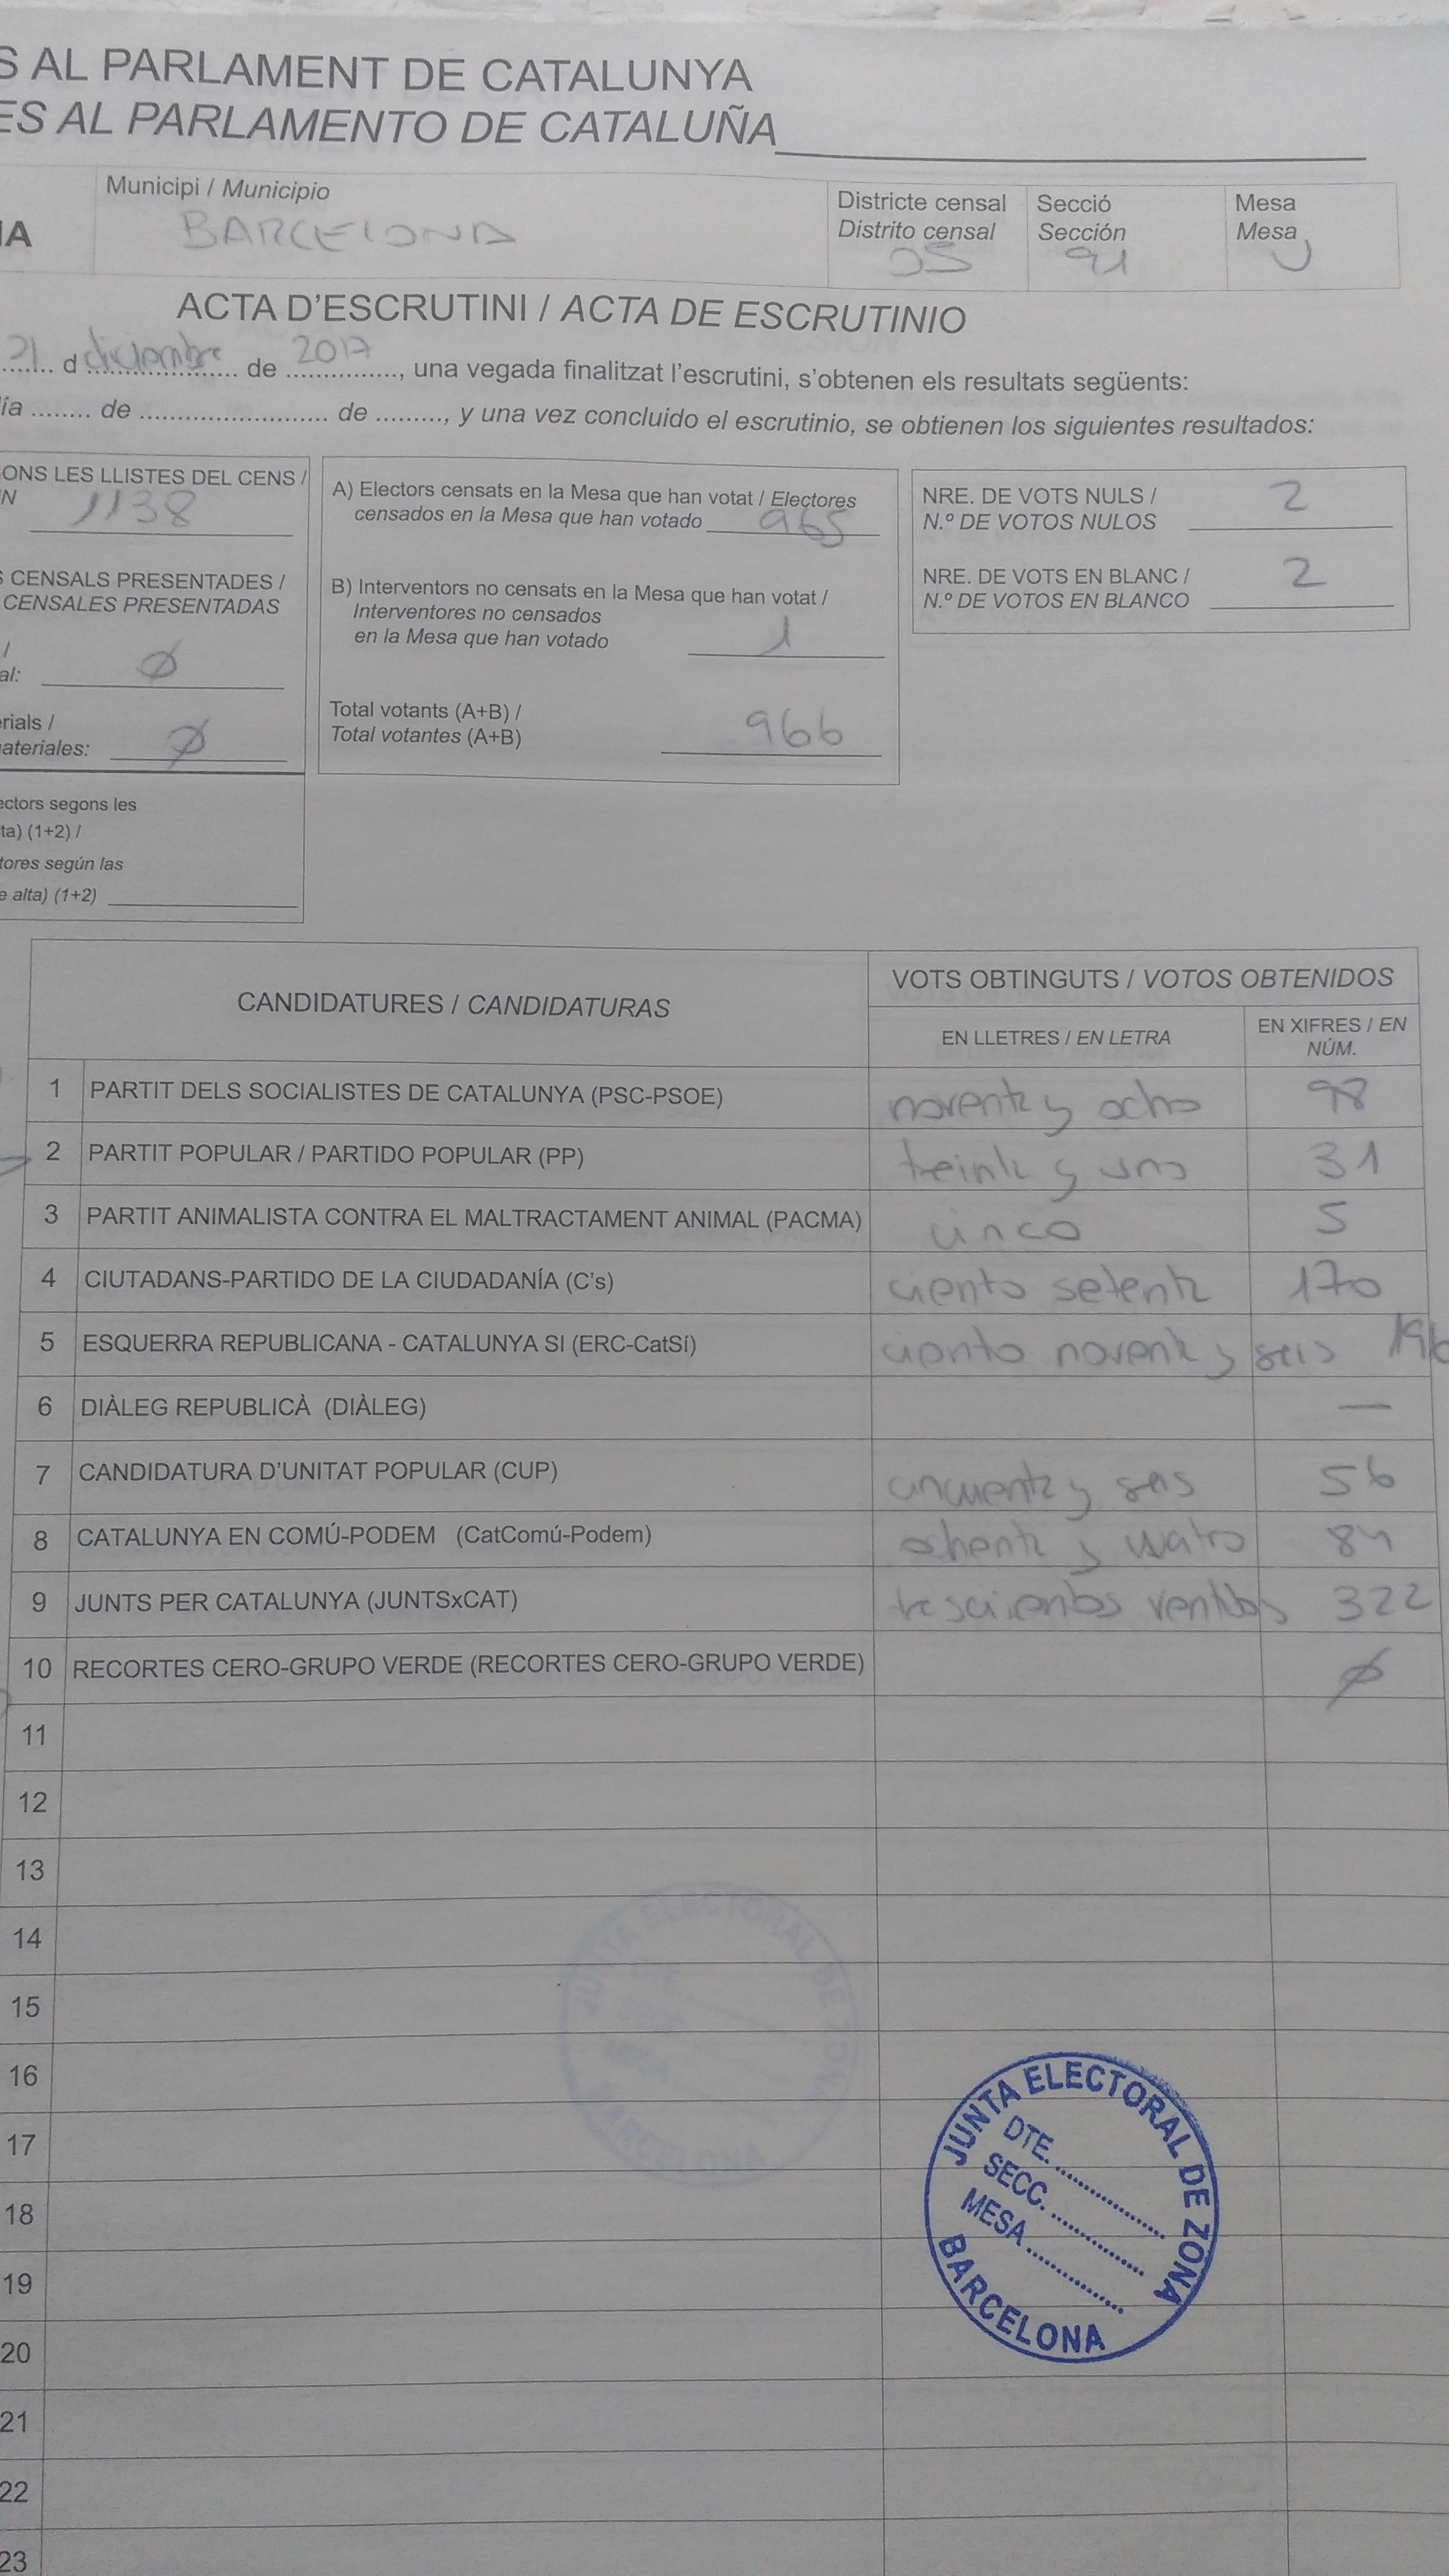 S AL PARLAMENT DE CATALUNYA
ES AL PARLAMENTO DE CATALUÑA
IA
Municipi / Municipio
BARCELONA
Districte censal
Distrito censal
05
Secció
Sección
91
Mesa
Mesa
U
ACTA D'ESCRUTINI / ACTA DE ESCRUTINIO
21 d diciembre de 2017, una vegada finalitzat l'escrutini, s'obtenen els resultats següents:
ía ........ de ............................ de .........., y una vez concluido el escrutinio, se obtienen los siguientes resultados:
ONS LES LLISTES DEL CENS /
N
1138
S CENSALS PRESENTADES /
CENSALES PRESENTADAS
/
al: Ø
erials /
ateriales: Ø
ectors segons les
ta) (1+2) /
tores según las
e alta) (1+2)
A) Electors censats en la Mesa que han votat / Electores
censados en la Mesa que han votado 965
B) Interventors no censats en la Mesa que han votat /
Interventores no censados
en la Mesa que han votado 1
Total votants (A+B) /
Total votantes (A+B) 966
NRE. DE VOTS NULS /
N.º DE VOTOS NULOS 2
NRE. DE VOTS EN BLANC /
N.º DE VOTOS EN BLANCO 2
CANDIDATURES / CANDIDATURAS
VOTS OBTINGUTS / VOTOS OBTENIDOS
EN LLETRES / EN LETRA
EN XIFRES / EN
NÚM.
1 PARTIT DELS SOCIALISTES DE CATALUNYA (PSC-PSOE) noventa y ocho 98
2 PARTIT POPULAR / PARTIDO POPULAR (PP) treinta y uno 31
3 PARTIT ANIMALISTA CONTRA EL MALTRACTAMENT ANIMAL (PACMA) cinco 5
4 CIUTADANS-PARTIDO DE LA CIUDADANÍA (C's) ciento setenta 170
5 ESQUERRA REPUBLICANA - CATALUNYA SI (ERC-CatSí) ciento noventa y seis 196
6 DIÀLEG REPUBLICÀ (DIÀLEG) —
7 CANDIDATURA D'UNITAT POPULAR (CUP) cincuenta y seis 56
8 CATALUNYA EN COMÚ-PODEM (CatComú-Podem) ochenta y cuatro 84
9 JUNTS PER CATALUNYA (JUNTSxCAT) trescientos ventidos 322
10 RECORTES CERO-GRUPO VERDE (RECORTES CERO-GRUPO VERDE) Ø
11
12
13
14
15
16
17
18
19
20
21
22
23
JUNTA ELECTORAL DE ZONA
DTE.
SECC.
MESA
BARCELONA